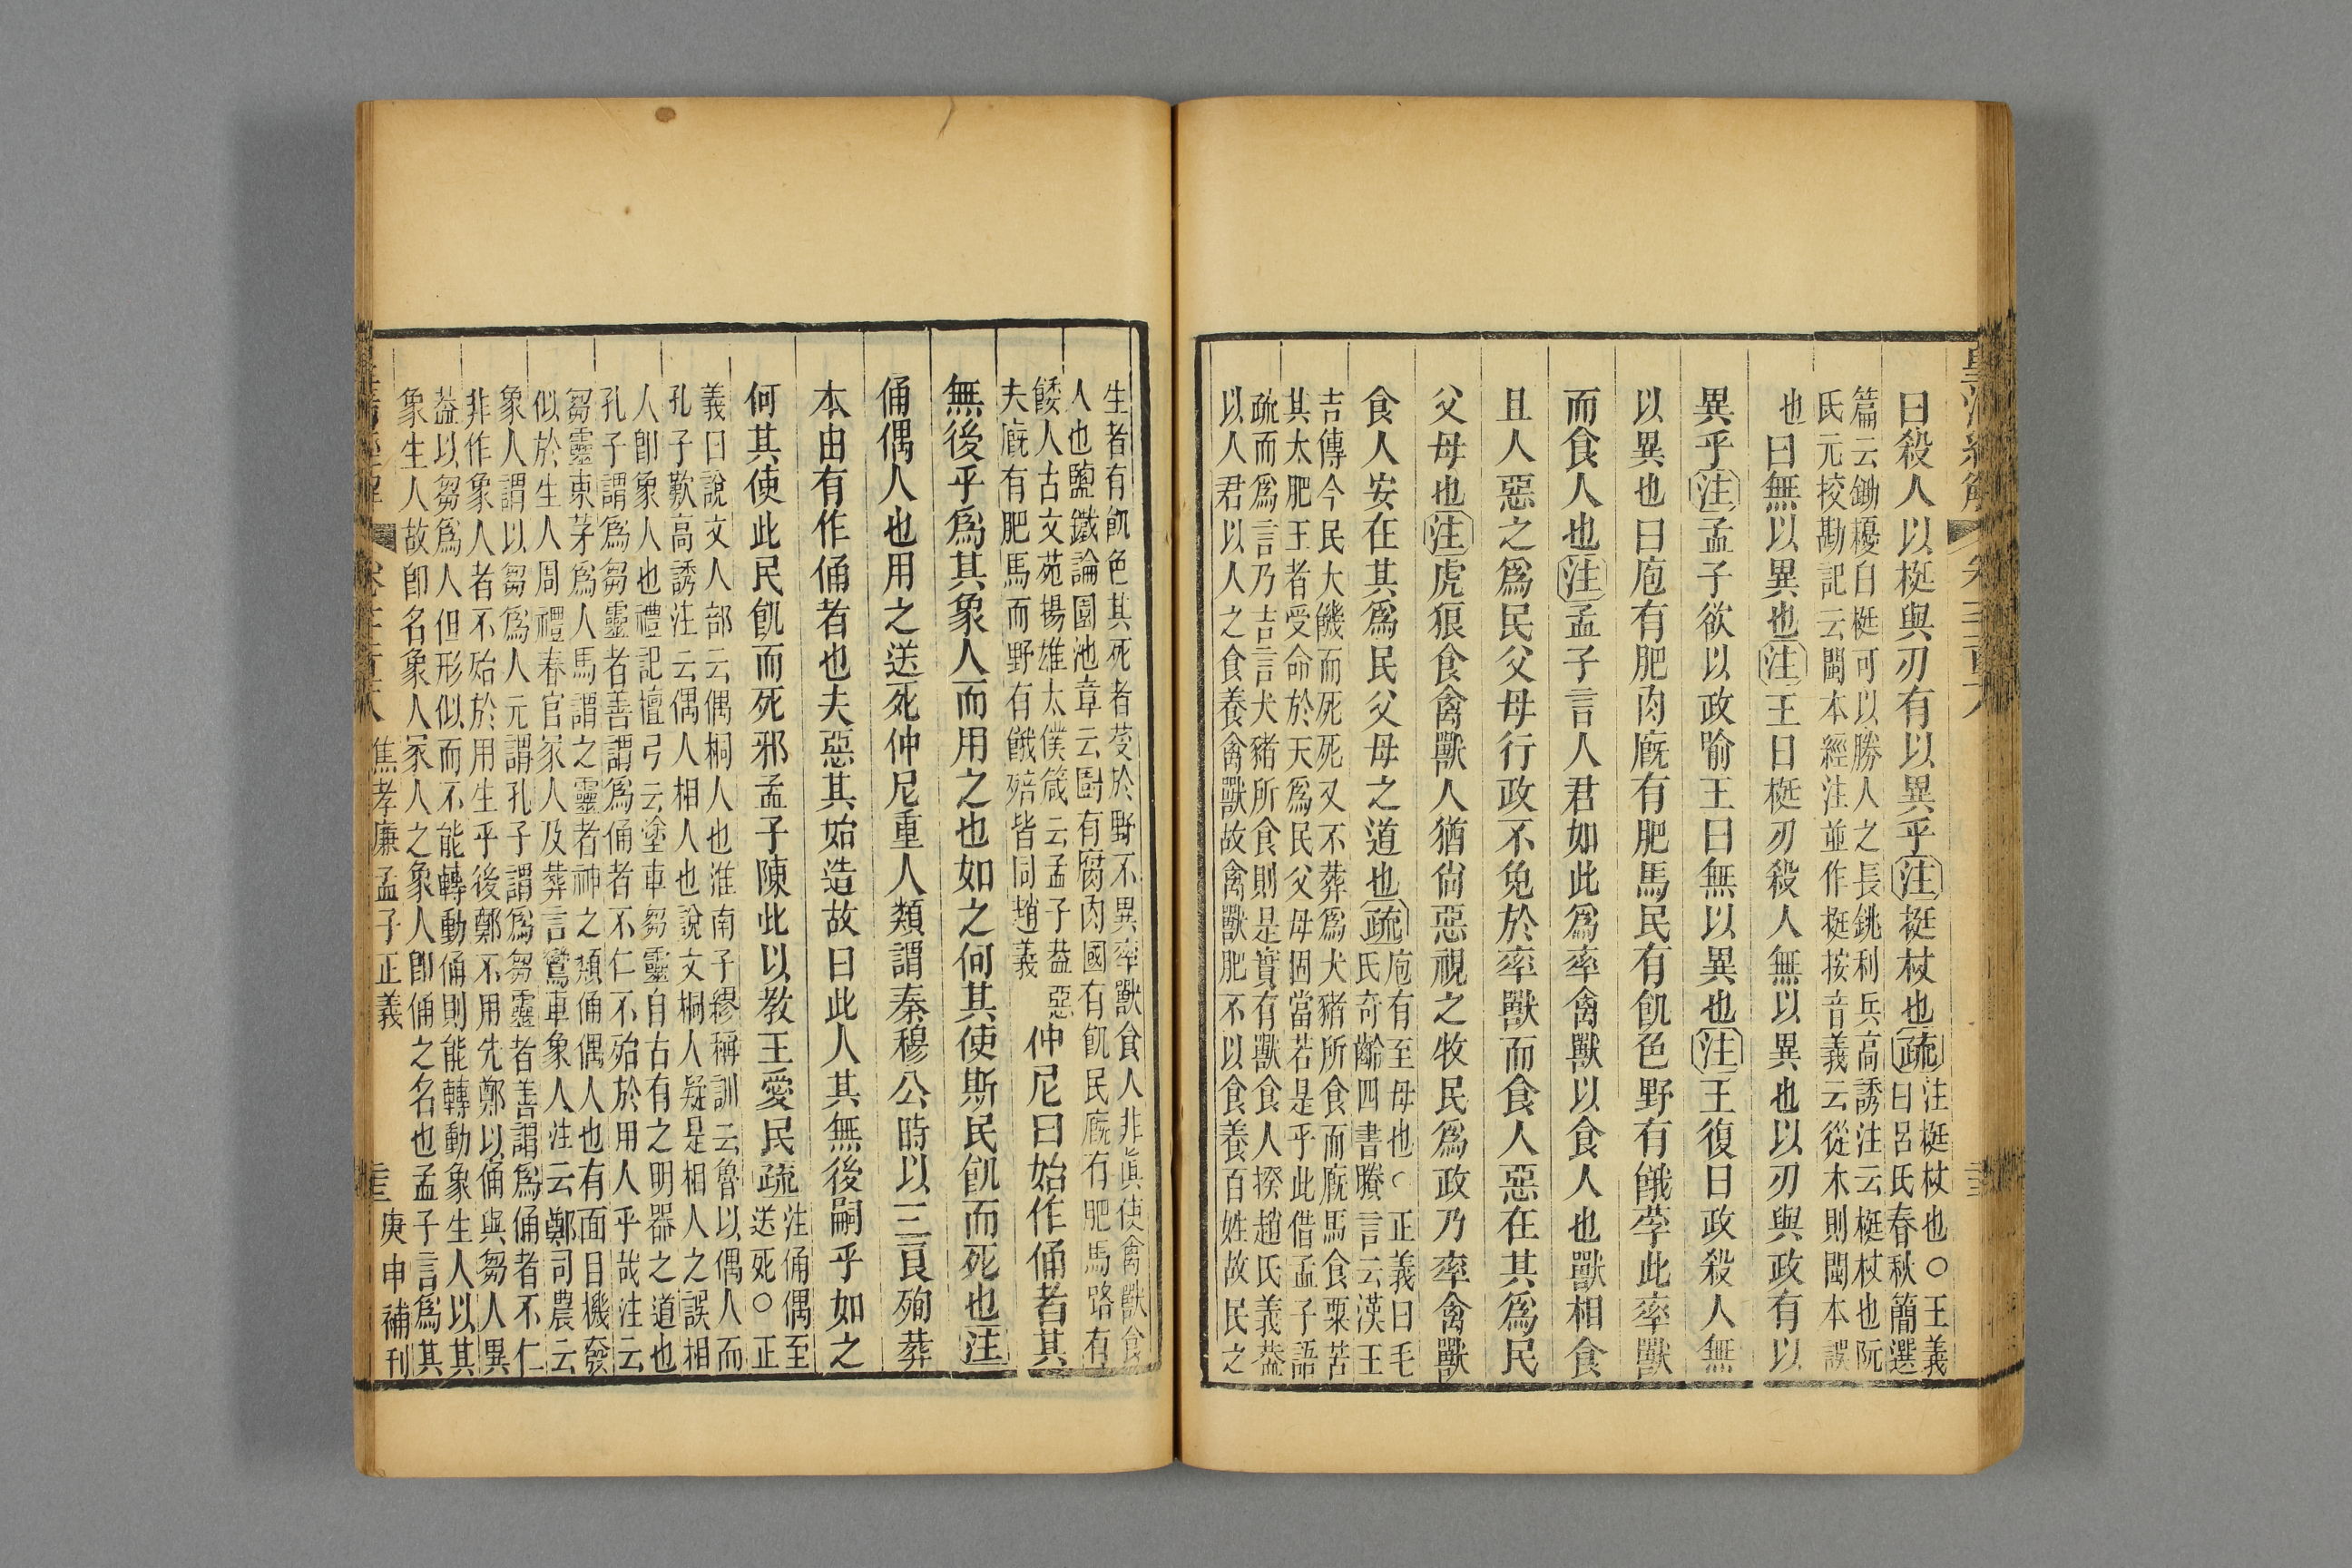 曰殺人以梃與刃有以異乎注梃杖也疏注梃杖也○王義
曰呂氏春秋簡選
篇云鋤櫌白梃可以勝人之長銚利兵高誘注云梃杖也阮
氏元挍勘記云閩本經注並作挺按音義云從木則閩本誤
也曰無以異也注王曰梃刃殺人無以異也以刃與政有以
異乎注孟子欲以政喻王曰無以異也注王復曰政殺人無
以異也曰庖有肥肉廐有肥馬民有飢色野有餓莩此率獸
而食人也注孟子言人君如此爲率禽獸以食人也獸相食
且人惡之爲民父母行政不免於率獸而食人惡在其爲民
父母也注虎狼食禽獸人猶尙惡視之牧民爲政乃率禽獸
食人安在其爲民父母之道也疏庖有至母也○正義曰毛
氏奇齡四書賸言云漢王
吉傳今民大饑而死死又不葬爲犬豬所食而廐馬食粟苦
其太肥王者受命於天爲民父母固當若是乎此借孟子語
疏而爲言乃吉言犬豬所食則是實有獸食人揆趙氏義葢
以人君以人之食養禽獸故禽獸肥不以食養百姓故民之
生者有飢色其死者莩於野不異率獸食人非眞使禽獸食
人也鹽鐵論園池章云廚有腐肉國有飢民廐有肥馬路有
餧人古文苑揚雄太僕箴云孟子葢惡
夫廐有肥馬而野有餓殍皆同趙義
仲尼曰始作俑者其
無後乎爲其象人而用之也如之何其使斯民飢而死也注
俑偶人也用之送死仲尼重人類謂秦穆公時以三良殉葬
本由有作俑者也夫惡其始造故曰此人其無後嗣乎如之
何其使此民飢而死邪孟子陳此以教王愛民疏注俑偶至
送死○正
義曰說文人部云偶桐人也淮南子繆稱訓云魯以偶人而
孔子歎高誘注云偶人相人也說文桐人疑是相人之誤相
人卽象人也禮記檀弓云塗車芻靈自古有之明器之道也
孔子謂爲芻靈者善謂爲俑者不仁不殆於用人乎哉注云
芻靈束茅爲人馬謂之靈者神之類俑偶人也有面目機發
似於生人周禮春官冢人及葬言鸞車象人注云鄭司農云
象人謂以芻爲人元謂孔子謂爲芻靈者善謂爲俑者不仁
非作象人者不殆於用生乎後鄭不用先鄭以俑與芻人異
葢以芻爲人但形似而不能轉動俑則能轉動象生人以其
象生人故卽名象人冢人之象人卽俑之名也孟子言爲其
焦孝廉孟子正義
庚申補刊